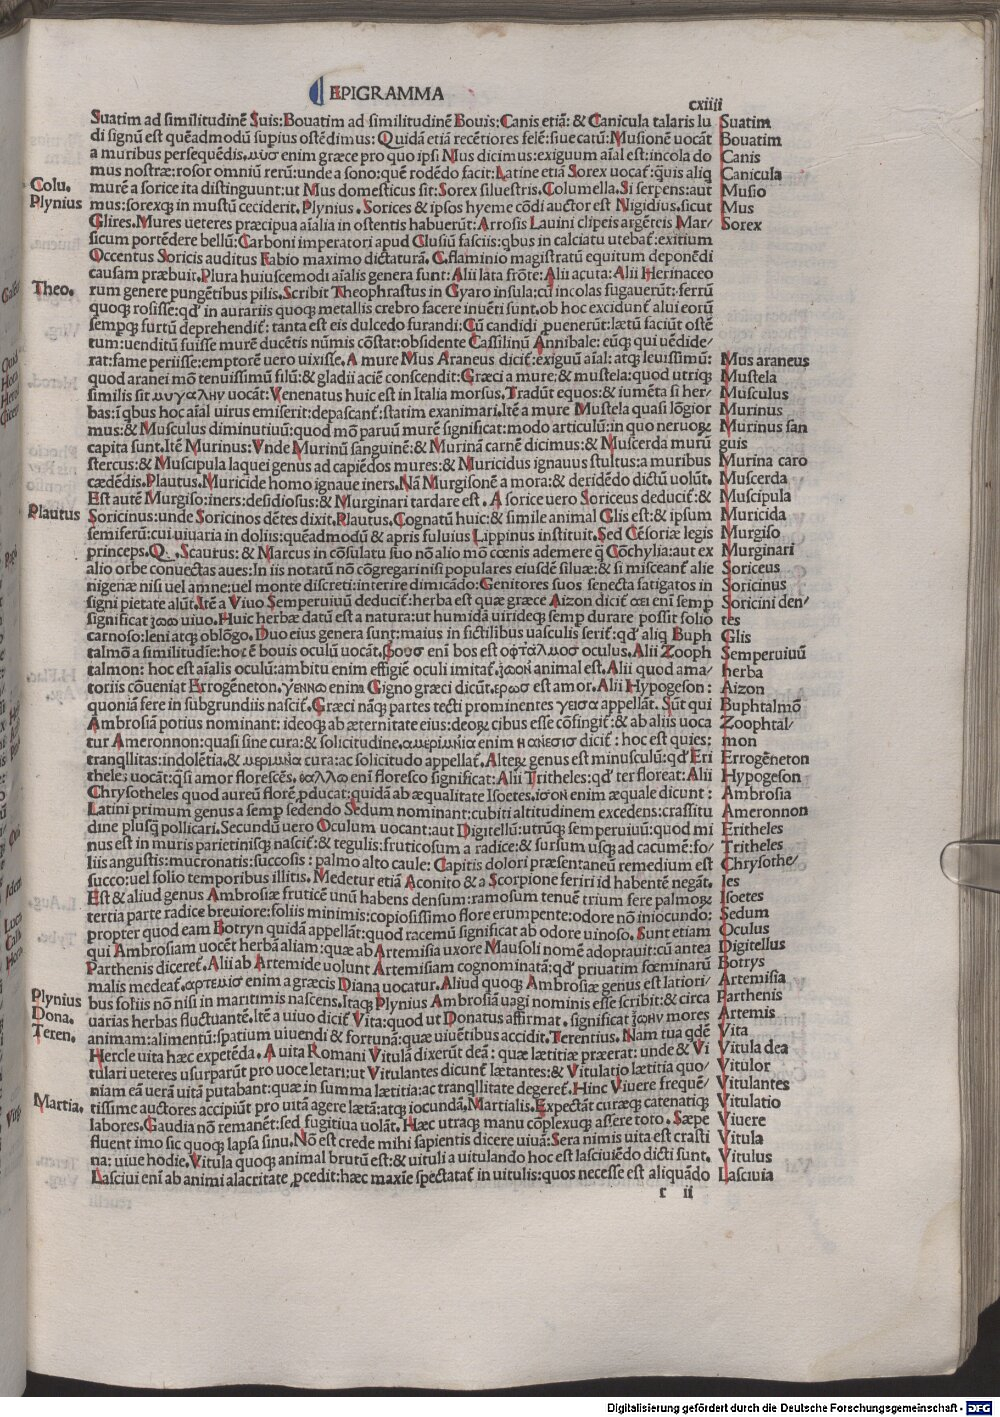 EPIGRAMMA
cxiiii
Suatim ad similitudinē Suis:Bouatim ad similitudinē Bouis:Canis etiā: & Canicula talaris lu
di signū est quēadmodū supius ostēdimus: Quidā etiā recētiores felē:siue catū: Musionē uocāt
a muribus persequēdis.μυσ enim græce pro quo ipsi Mus dicimus:exiguum aīal est:incola do
mus nostræ:rosor omniū rerū:unde a sono:quē rodēdo facit:Latine etiā Sorex uocat̄:quis aliq
murē a sorice ita distinguunt:ut Mus domesticus sit:Sorex siluestris.Columella.Si serpens:aut
mus:sorexqʒ in mustū ceciderit.Plynius.Sorices & ipsos hyeme cōdi auctor est Nigidius.sicut
Glires.Mures ueteres præcipua aīalia in ostentis habuerūt:Arrosis Lauini clipeis argēteis Mar/
sicum portēdere bellū:Carboni imperatori apud Clusiū fasciis:qbus in calciatu utebat̄:exitium
Occentus Soricis auditus Fabio maximo dictaturā.C.flaminio magistratū equitum deponēdi
causam præbuit.Plura huiuscemodi aīalis genera sunt:Alii lata frōte:Alii acuta:Alii Herinaceo
rum genere pungētibus pilis.Scribit Theophrastus in Gyaro insula:cū incolas fugauerūt:ferrū
quoqʒ rosisse:qd' in aurariis quoqʒ metallis crebro facere inuēti sunt.ob hoc excidunt̄ alui eorū
sempqʒ furtū deprehendit̄: tanta est eis dulcedo furandi:Cū candidi puenerūt:lætū faciūt ostē
tum:uenditū fuisse murē ducētis nūmis cōstat:obsidente Cassilinū Annibale: eūqʒ qui uēdide/
rat:fame periisse:emptorē uero uixisse.A mure Mus Araneus dicit̄:exiguū aīal: atqʒ leuissimū:
quod aranei mō tenuissimū filū:& gladii aciē conscendit:Græci a mure:& mustela:quod utriqʒ
similis sit μυγαλην uocāt: Venenatus huic est in Italia morsus.Tradūt equos:& iumēta si her/
bas:ī qbus hoc aīal uirus emiserit:depascant̄:statim exanimari.Itē a mure Mustela quasi lōgior
mus:& Musculus diminutiuū:quod mō paruū murē significat:modo articulū:in quo neruoꝝ
capita sunt.Itē Murinus:Vnde Murinū sanguinē:& Murinā carnē dicimus:& Muscerda murū
stercus:& Muscipula laquei genus ad capiēdos mures:& Muricidus ignauus stultus:a muribus
cædēdis.Plautus.Muricide homo ignaue iners.Nā Murgisonē a mora:& deridēdo dictū uolūt.
Est autē Murgiso:iners:desidiosus:& Murginari tardare est.A sorice uero Soriceus deducit̄:&
Soricinus:unde Soricinos dētes dixit.Plautus.Cognatū huic:& simile animal Glis est:& ipsum
semiferū:cui uiuaria in doliis:quēadmodū & apris fuluius Lippinus instituit.Sed Cēsoriæ legis
princeps.Q. Scaurus: & Marcus in cōsulatu suo nō alio mō cœnis ademere q̄ Cōchylia:aut ex
alio orbe conuectas aues:In iis notatū nō cōgregari nisi populares eiusdē siluæ:& si misceant̄ alie
nigenæ nisi uel amne:uel monte discreti:interire dimicādo:Genitores suos senecta fatigatos in
signi pietate alūt.Itē a Viuo Semperuiuū deducit̄:herba est quæ græce Aizon dicit̄ αει enī semp
significat ζωω uiuo.Huic herbæ datū est a natura:ut humida uirideqʒ semp durare possit folio
carnoso:leni atqʒ oblōgo.Duo eius genera sunt:maius in fictilibus uasculis serit̄:qd' aliq Buph
talmō a similitudīe:hoc ē bouis oculū uocāt.βουσ enī bos est οφταλμοσ oculus.Alii Zooph
talmon: hoc est aīalis oculū:ambitu enim effigiē oculi imitat̄.ζωον animal est.Alii quod ama/
toriis cōueniat Errogēneton.γεννω enim Gigno græci dicūt.ερωσ est amor.Alii Hypogeson:
quoniā fere in subgrundiis nascit̄.Græci nāqʒ partes tecti prominentes γεισα appellāt. Sūt qui
Ambrosiā potius nominant: ideoqʒ ab æternitate eius:deoꝝ cibus esse cōfingit̄:& ab aliis uoca
tur Ameronnon:quasi sine cura:& solicitudine.αμεριμνια enim ηανεσισ dicit̄ : hoc est quies:
tranqllitas:indolētia,& μεριμνια cura:ac solicitudo appellat̄.Alteꝝ genus est minusculū:qd' Eri
thele; uocāt:q̄si amor florescēs.θαλλω enī floresco significat:Alii Tritheles:qd' ter floreat:Alii
Chrysotheles quod aureū florē pducat:quidā ab æqualitate Isoetes.ισον enim æquale dicunt:
Latini primum genus a semp sedendo Sedum nominant:cubiti altitudinem excedens:crassitu
dine plusq̄ pollicari.Secundū uero Oculum uocant:aut Digitellū:utrūqʒ semperuiuū:quod mi
nus est in muris parietinisqʒ nascit̄:& tegulis:fruticosum a radice:& sursum usqʒ ad cacumē:fo/
liis angustis:mucronatis:succosis : palmo alto caule: Capitis dolori præsentaneū remedium est
succo:uel folio temporibus illitis.Medetur etiā Aconito & a Scorpione feriri id habentē negāt.
Est & aliud genus Ambrosiæ fruticē unū habens densum:ramosum tenuē trium fere palmoꝝ
tertia parte radice breuiore:foliis minimis:copiosissimo flore erumpente:odore nō iniocundo:
propter quod eam Botryn quidā appellāt:quod racemū significat ab odore uinoso.Sunt etiam
qui Ambrosiam uocēt herbā aliam:quæ ab Artemisia uxore Mausoli nomē adoptauit:cū antea
Parthenis diceret̄.Alii ab Artemide uolunt Artemisiam cognominatā:qd' priuatim fœminarū
malis medeat̄.αρτεμισ enim a græcis Diana uocatur.Aliud quoqʒ Ambrosiæ genus est latiori/
bus foliis nō nisi in maritimis nascens.Itaqʒ Plynius Ambrosiā uagi nominis esse scribit:& circa
uarias herbas fluctuantē.Itē a uiuo dicit̄ Vita:quod ut Donatus affirmat.significat ζωην mores
animam:alimentū:spatium uiuendi & fortunā:quæ uiuētibus accidit.Terentius.Nam tua qdē
Hercle uita hæc expetēda. A uita Romani Vitulā dixerūt deā: quæ lætitiæ præerat: unde & Vi
tulari ueteres usurparūt pro uoce letari:ut Vitulantes dicunt̄ lætantes:& Vitulatio lætitia quo/
niam eā uerā uitā putabant:quæ in summa lætitia:ac tranqllitate degeret̄.Hinc Viuere frequē/
tissime auctores accipiūt pro uitā agere lætā:atqʒ iocundā.Martialis.Expectāt curæqʒ catenatiqʒ
labores.Gaudia nō remanēt:sed fugitiua uolāt.Hæc utraqʒ manu cōplexuqʒ assere toto.Sæpe
fluent imo sic quoqʒ lapsa sinu.Nō est crede mihi sapientis dicere uiuā:Sera nimis uita est crasti
na:uiue hodie.Vitula quoqʒ animal brutū est:& uituli a uitulando hoc est lasciuiēdo dicti sunt.
Lasciui enī ab animi alacritate pcedit:hæc maxīe spectatat̄ in uitulis:quos necesse est aliquādo
r ii
Colu.
Plynius
Theo.
Plautus
Plynius
Dona.
Teren.
Martia.
Suatim
Bouatim
Canis
Canicula
Musio
Mus
Sorex
Mus araneus
Mustela
Musculus
Murinus
Murinus san
guis
Murina caro
Muscerda
Muscipula
Muricida
Murgiso
Murginari
Soriceus
Soricinus
Soricini den/
tes
Glis
Semperuiuū
herba
Aizon
Buphtalmō
Zoophtal/
mon
Errogēneton
Hypogeson
Ambrosia
Ameronnon
Eritheles
Tritheles
Chrysothe/
les
Isoetes
Sedum
Oculus
Digitellus
Botrys
Artemisia
Parthenis
Artemis
Vita
Vitula dea
Vitulor
Vitulantes
Vitulatio
Viuere
Vitula
Vitulus
Lasciuia
Digitalisierung gefördert durch die Deutsche Forschungsgemeinschaft - DFG